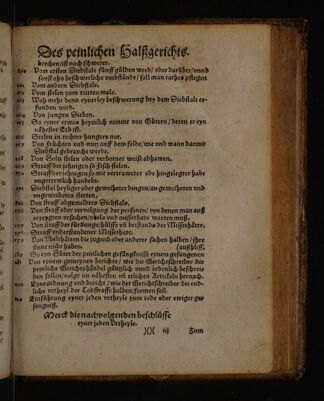 Des peinlichen Halßgerichts.
brochen/ist noch schwerer.
160 Von ersten Diebstale fünff gülden werd/ oder darüber/vnnd
sunst ohn beschwerliche vmbstände/ soll man rathes pflegen
161 Von andern Diebstale.
162 Von stelen zum tritten male.
163 Wo mehr denn eynerley beschwerung bey dem Diebstale er-
funden wird.
164 Von jungen Dieben.
165 So eyner etwas heymlich nimmt von Gütern/ deren er eyn
nähester Erb ist.
166 Stelen in rechter hungers not.
167 Von früchten vnd nutz auff dem felde/wie vnd wann damit
Diebstal gebraucht werde.
168 Von Holtz stelen oder verbotner weise abhawen.
169 Straff der jenigen so fisch stelen.
170 Straff der jenigen so mit vertrawter ode hingelegter habe
vngetrewlich handeln.
171 Diebstal heyliger oder geweiheter dingen/an geweiheten vnd
vngeweiheten stetten.
Von straff obgemeldten Diebstals.
176 Von straff oder versorgung der personen/ von denen man auß
erzeygten vrsachen/vbels vnd missethate warten muß.
177 Von straff der fürdrung/hülffe vñ beistands der Missethäter.
Straff vnderstandener Missethat.
Von Vbelthätern die jugend oder anderer sachen halben/jhre
sinne nicht haben. (außhilfft.
180 So eyn Hüter der peinlichen gefäncknisse eynem gefangenen
181 Von eynem gemeynen bericht/ wie die Gerichtschreiber die
peinliche Gerichtshändel gäntzlich vnnd ordenlich beschrei-
ben sollen/volgt im nähesten vñ etlichen Articklen hernach.
190 Eyn ordnung vnd bericht/wie der Gerichtschreiber die end-
liche vrtheyl der Todstraffe halben/formen soll.
Einführung eyner jeden vrtheyle zum tode oder ewiger ge-
fengniß.
Merck die nachvolgenden beschlüsse
eyner jeden Vrtheyle.
XX iij Zum